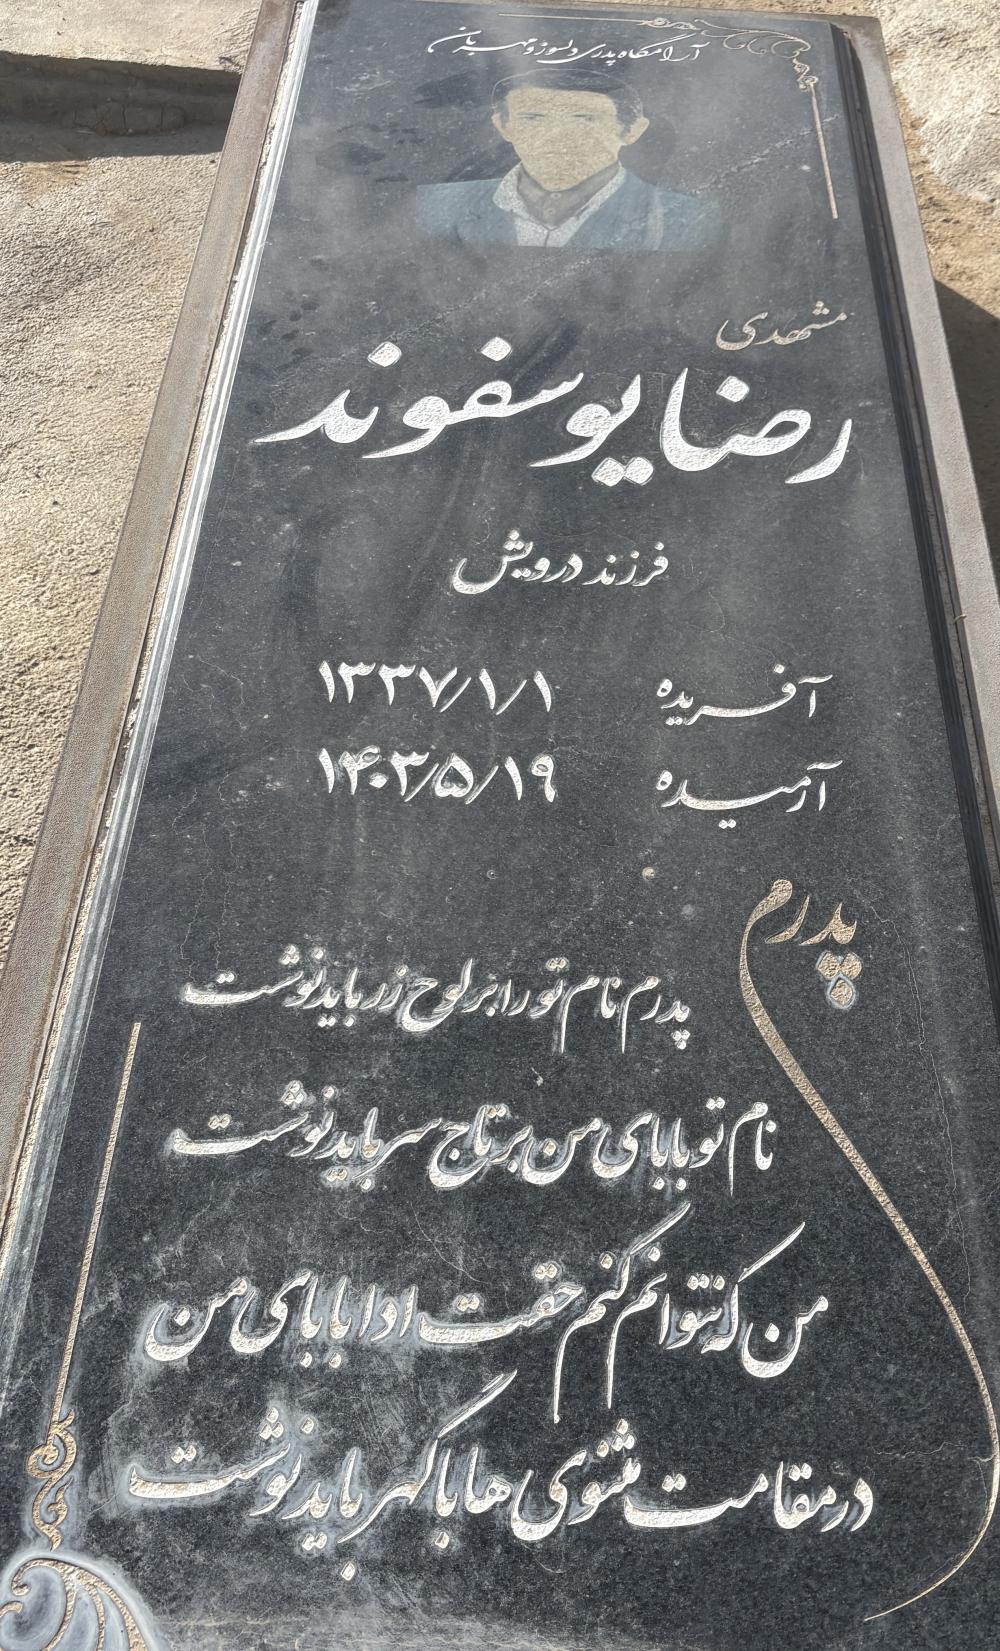 آرامگاه پدری دلسوز و مهربان
مشهدی
رضا یوسفوند
فرزند درویش
آفریده ۱۳۳۷/۱/۱
آرمیده ۱۴۰۳/۵/۱۹
پدرم
پدرم نام تو را بر لوح زر باید نوشت
نام تو بابای من بر تاج سر باید نوشت
من که نتوانم کنم حقت ادا بابای من
در مقامت مثنوی ها با گهر باید نوشت